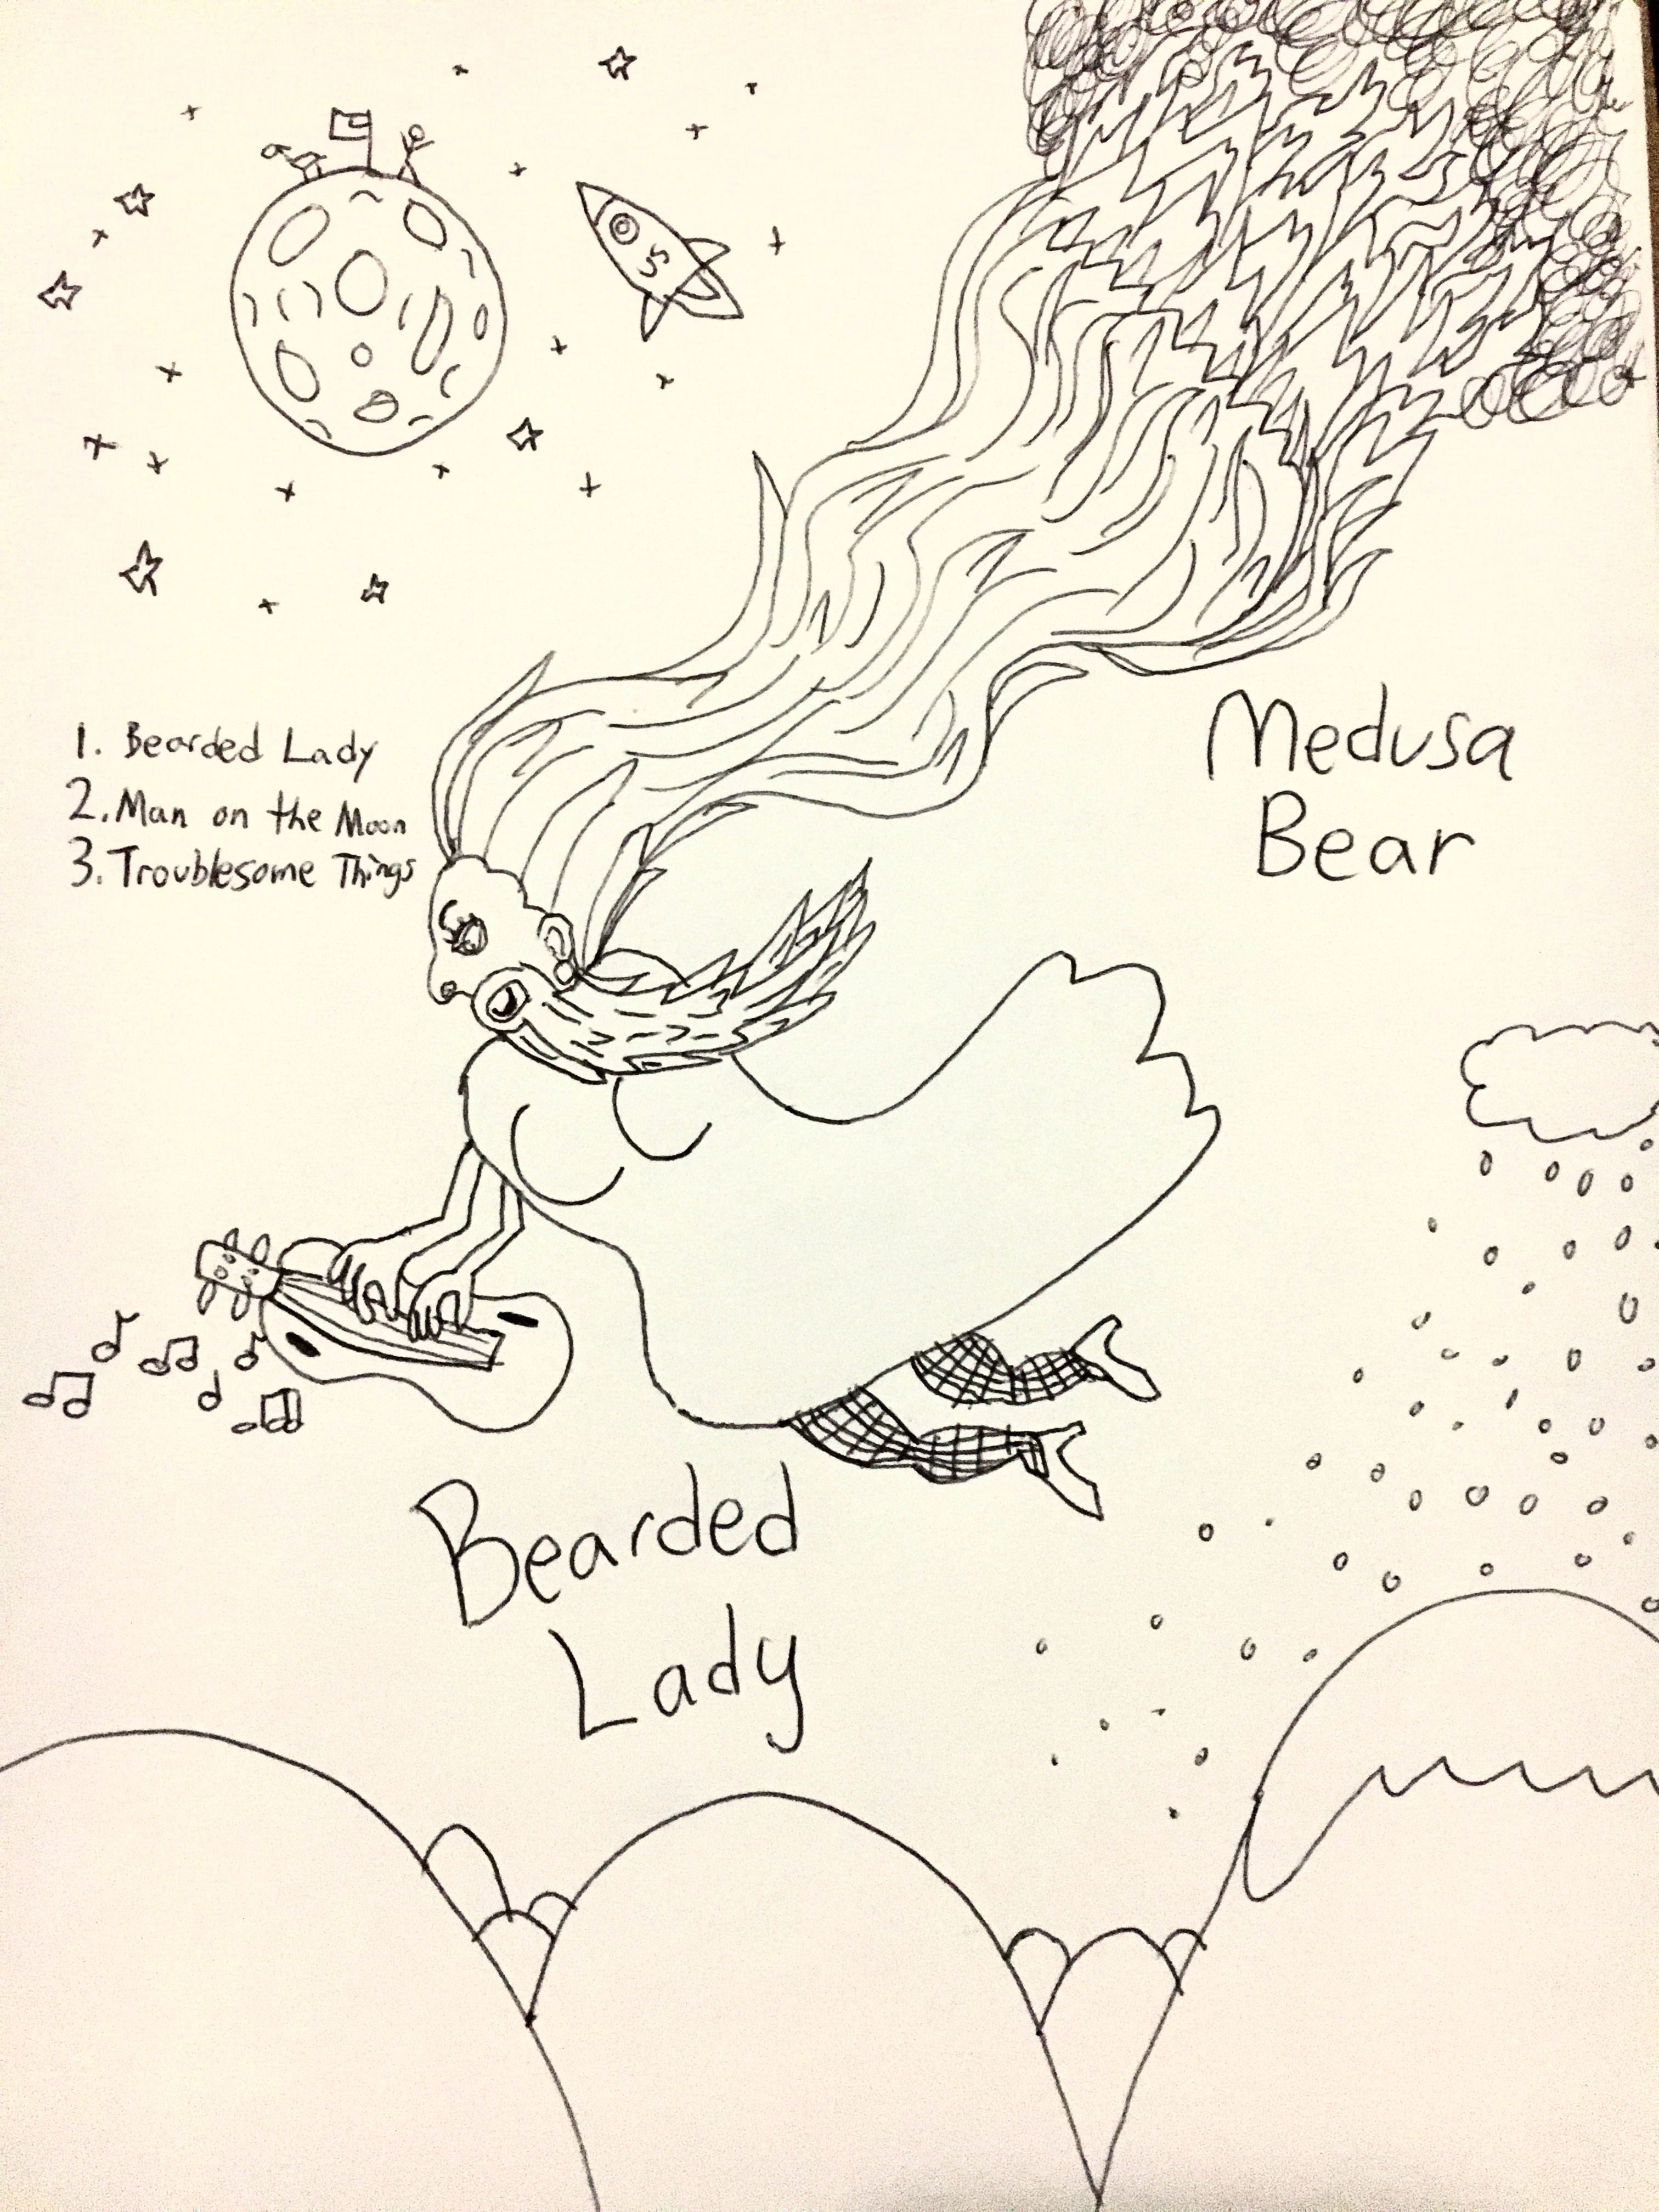 1. Bearded Lady
2. Man on the Moon
3. Troublesome Things
Medusa
Bear
Bearded
Lady